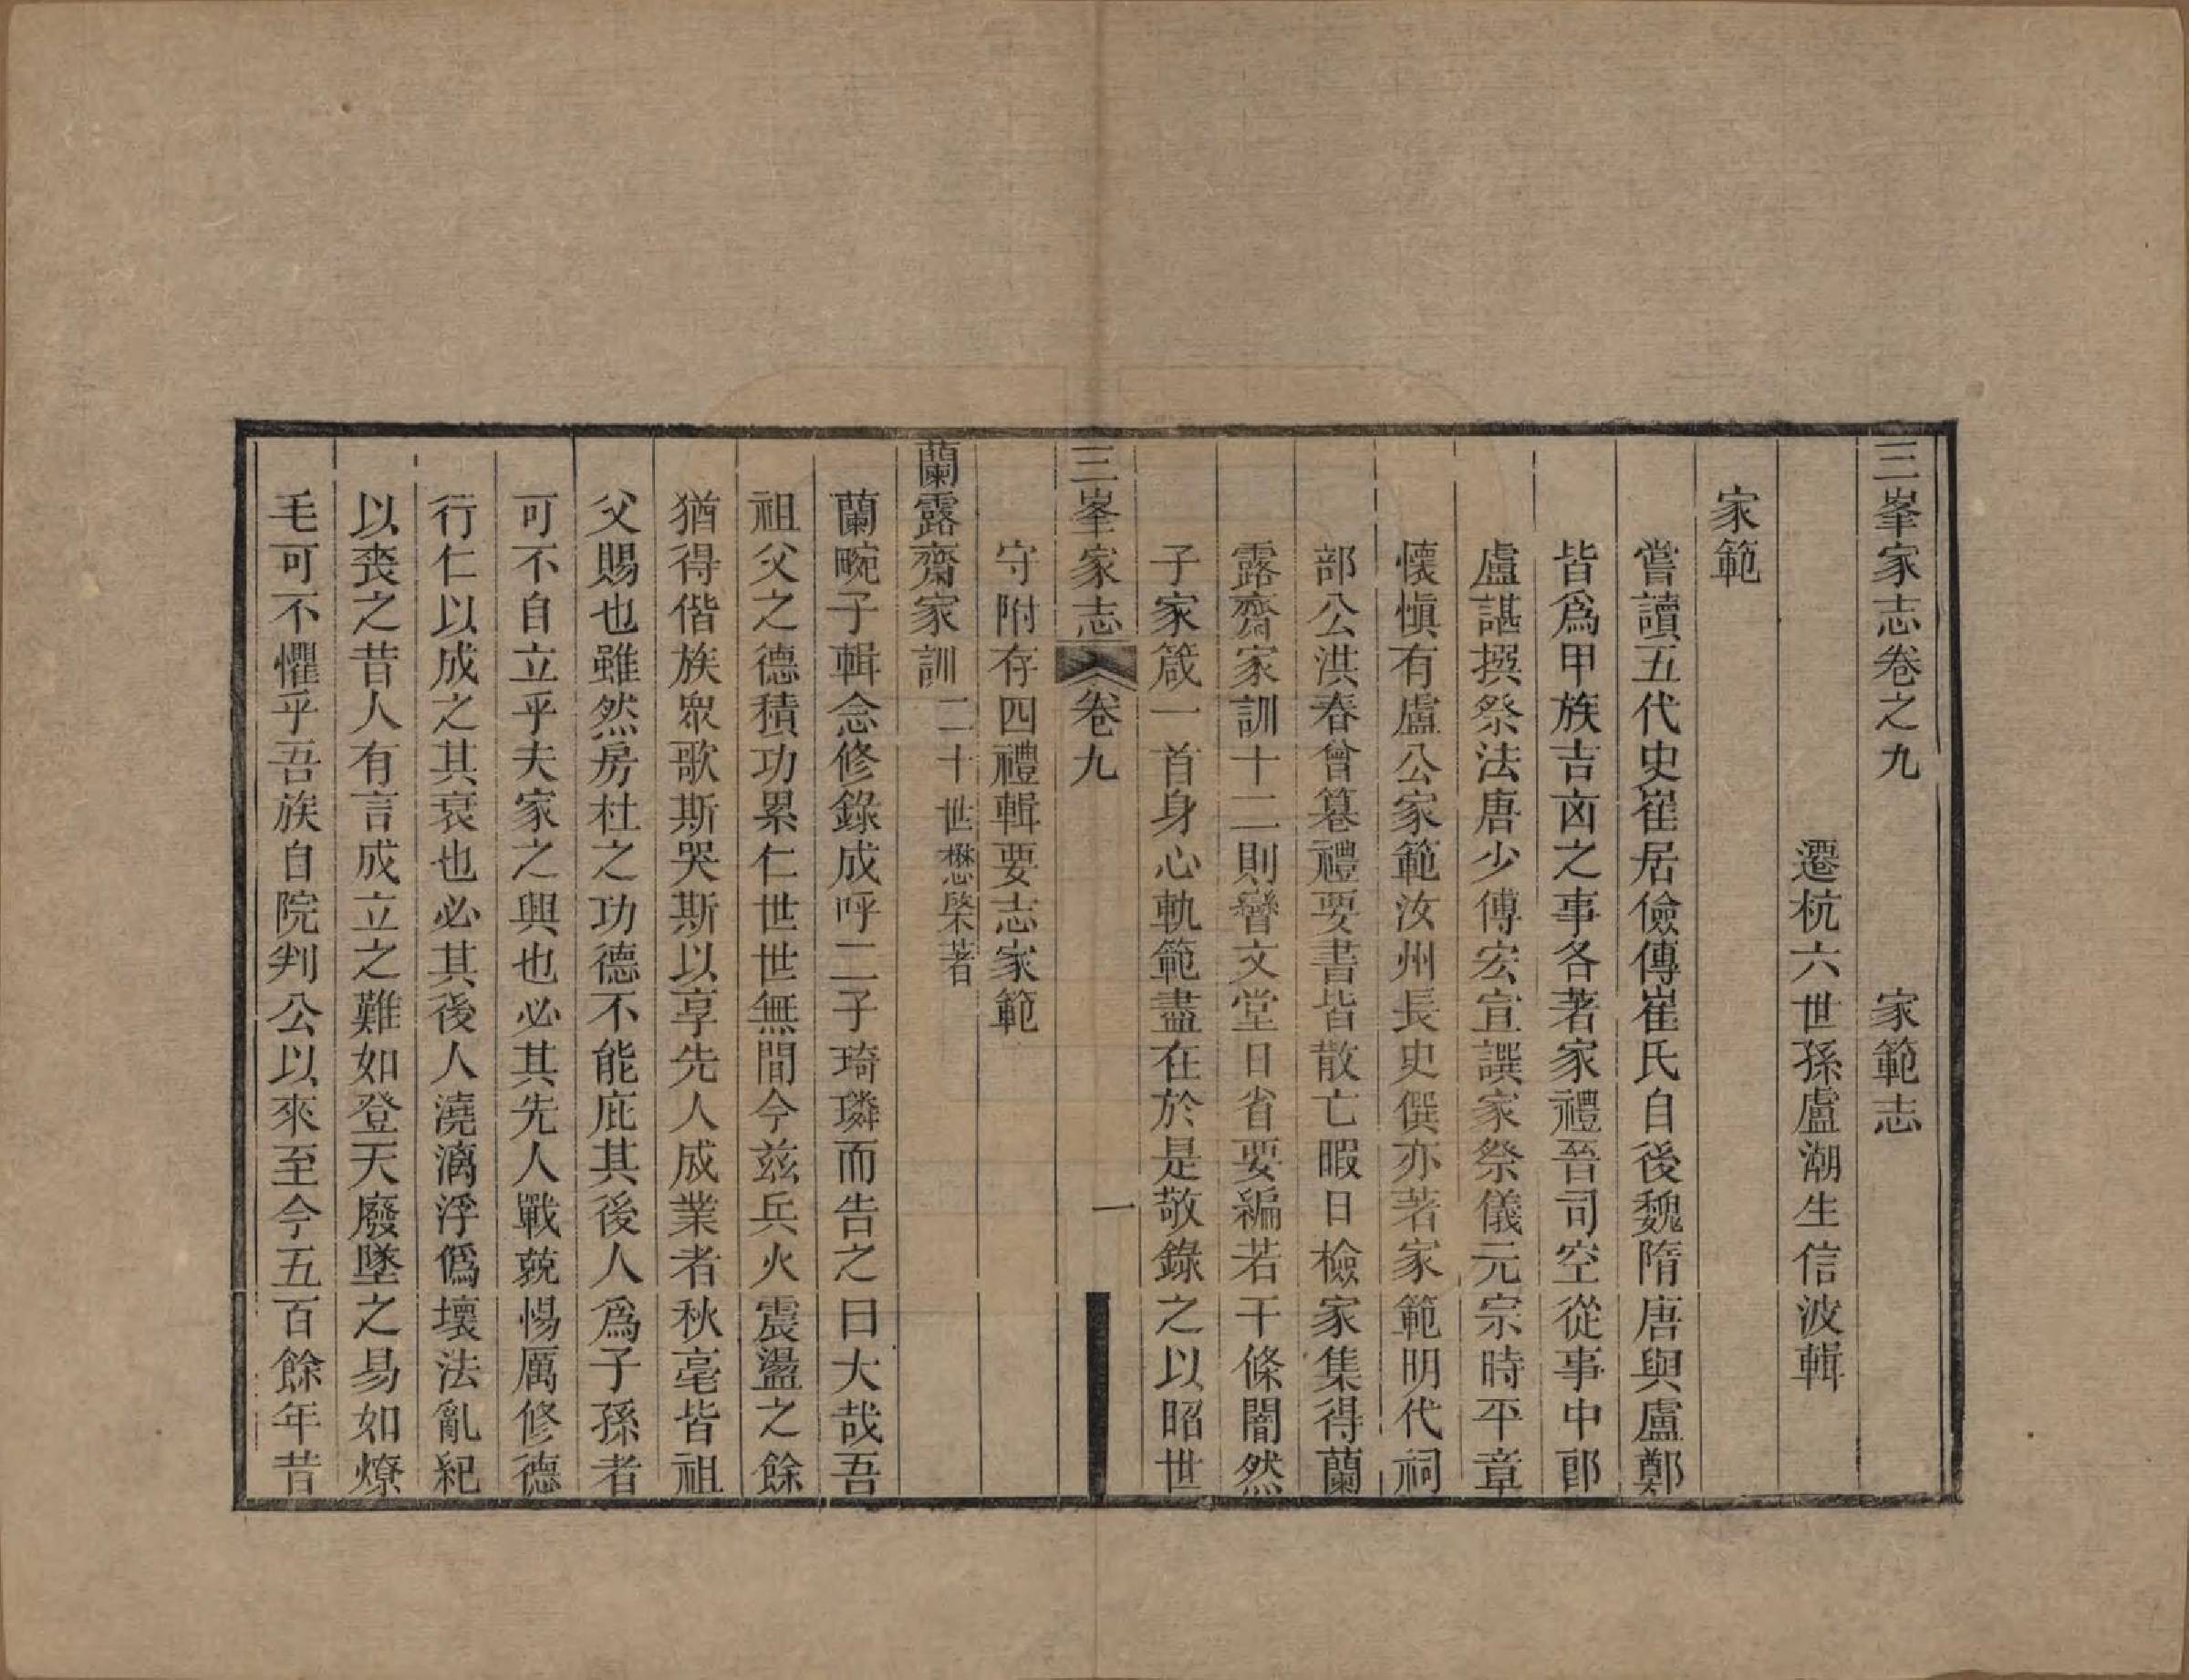 三峯家志卷之九　家範志
遷杭六世孫盧潮生信波輯
家範
嘗讀五代史崔居儉傳崔氏自後魏隋唐與盧鄭
皆爲甲族吉㐫之事各著家禮晉司空從事中郎
盧諶撰祭法唐少傅宏宣譔家祭儀元宗時平章
懷愼有盧公家範汝州長史僎亦著家範明代祠
部公洪春曾纂禮要書皆散亡暇日檢家集得蘭
露齋家訓十二則礐文堂日省要編若干條闇然
子家箴一首身心軌範盡在於是敬錄之以昭世
三峯家志　卷九　一
守附存四禮輯要志家範
蘭露齋家訓二十世懋棨著
蘭畹子輯念修錄成呼二子琦璘而告之曰大哉吾
祖父之德積功累仁世世無間今兹兵火震盪之餘
猶得偕族衆歌斯哭斯以享先人成業者秋亳皆祖
父賜也雖然房杜之功德不能庇其後人爲子孫者
可不自立乎夫家之興也必其先人戰兢惕厲修德
行仁以成之其衰也必其後人澆漓浮僞壞法亂紀
以喪之昔人有言成立之難如登天廢墜之易如燎
毛可不懼乎吾族自院判公以來至今五百餘年昔